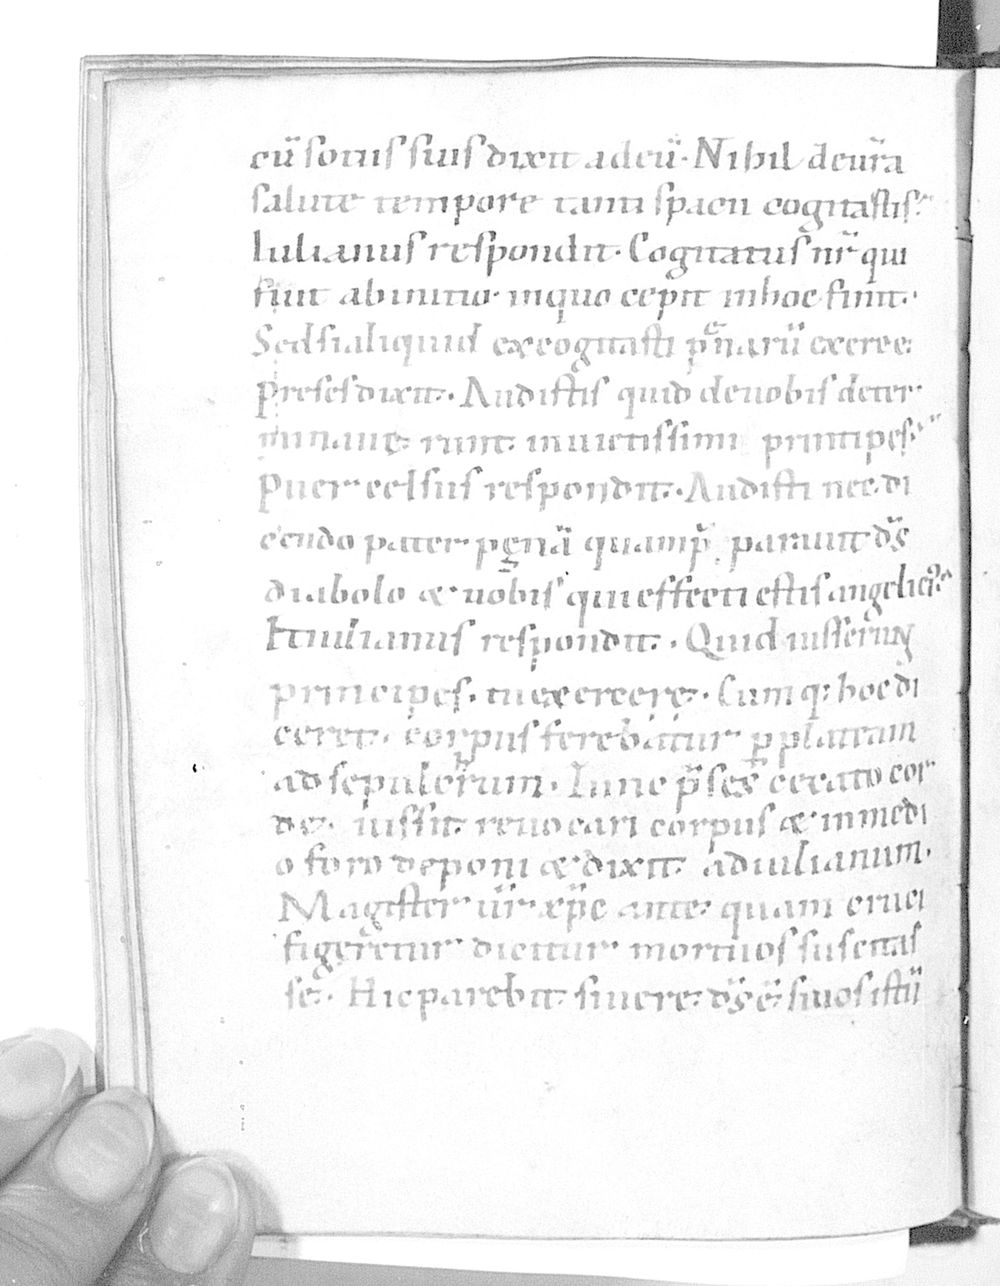 cū sotiis suis dixit ad eū· Nihil de ur̄a
salute tempore tanti spacii cogitastis·
Iulianus respondit· Cogitatus nr̄ qui
fuit ab initio· in quo cepit in hoc finit·
Sed si aliquid excogitasti pęnarū exerce·
Preses dixit· Audistis quid de uobis deter
minaue runt inuictissimi principes·
Puer celsus respondit·Audisti nec di
cendo pater pęnā quam p̄ parauit ds̄
diabolo & uobis qui effecti estis angeli ei·
Et iulianus respondit·· Quid iusserunt
principes· tu exercere·· Cum q: hoc di
ceret· corpus ferebatur p plateam
ad sepulcrum· Tunc p̄ses cecato cor
de· iussit reuocari corpus & in medi
o foro deponi & dixit ad iulianum·
Magister ur̄ xp̄c ante quam cruci
figeretur dicitur mortuos suscitas
se· Hic parebit si uere ds̄ ē· si uos istū